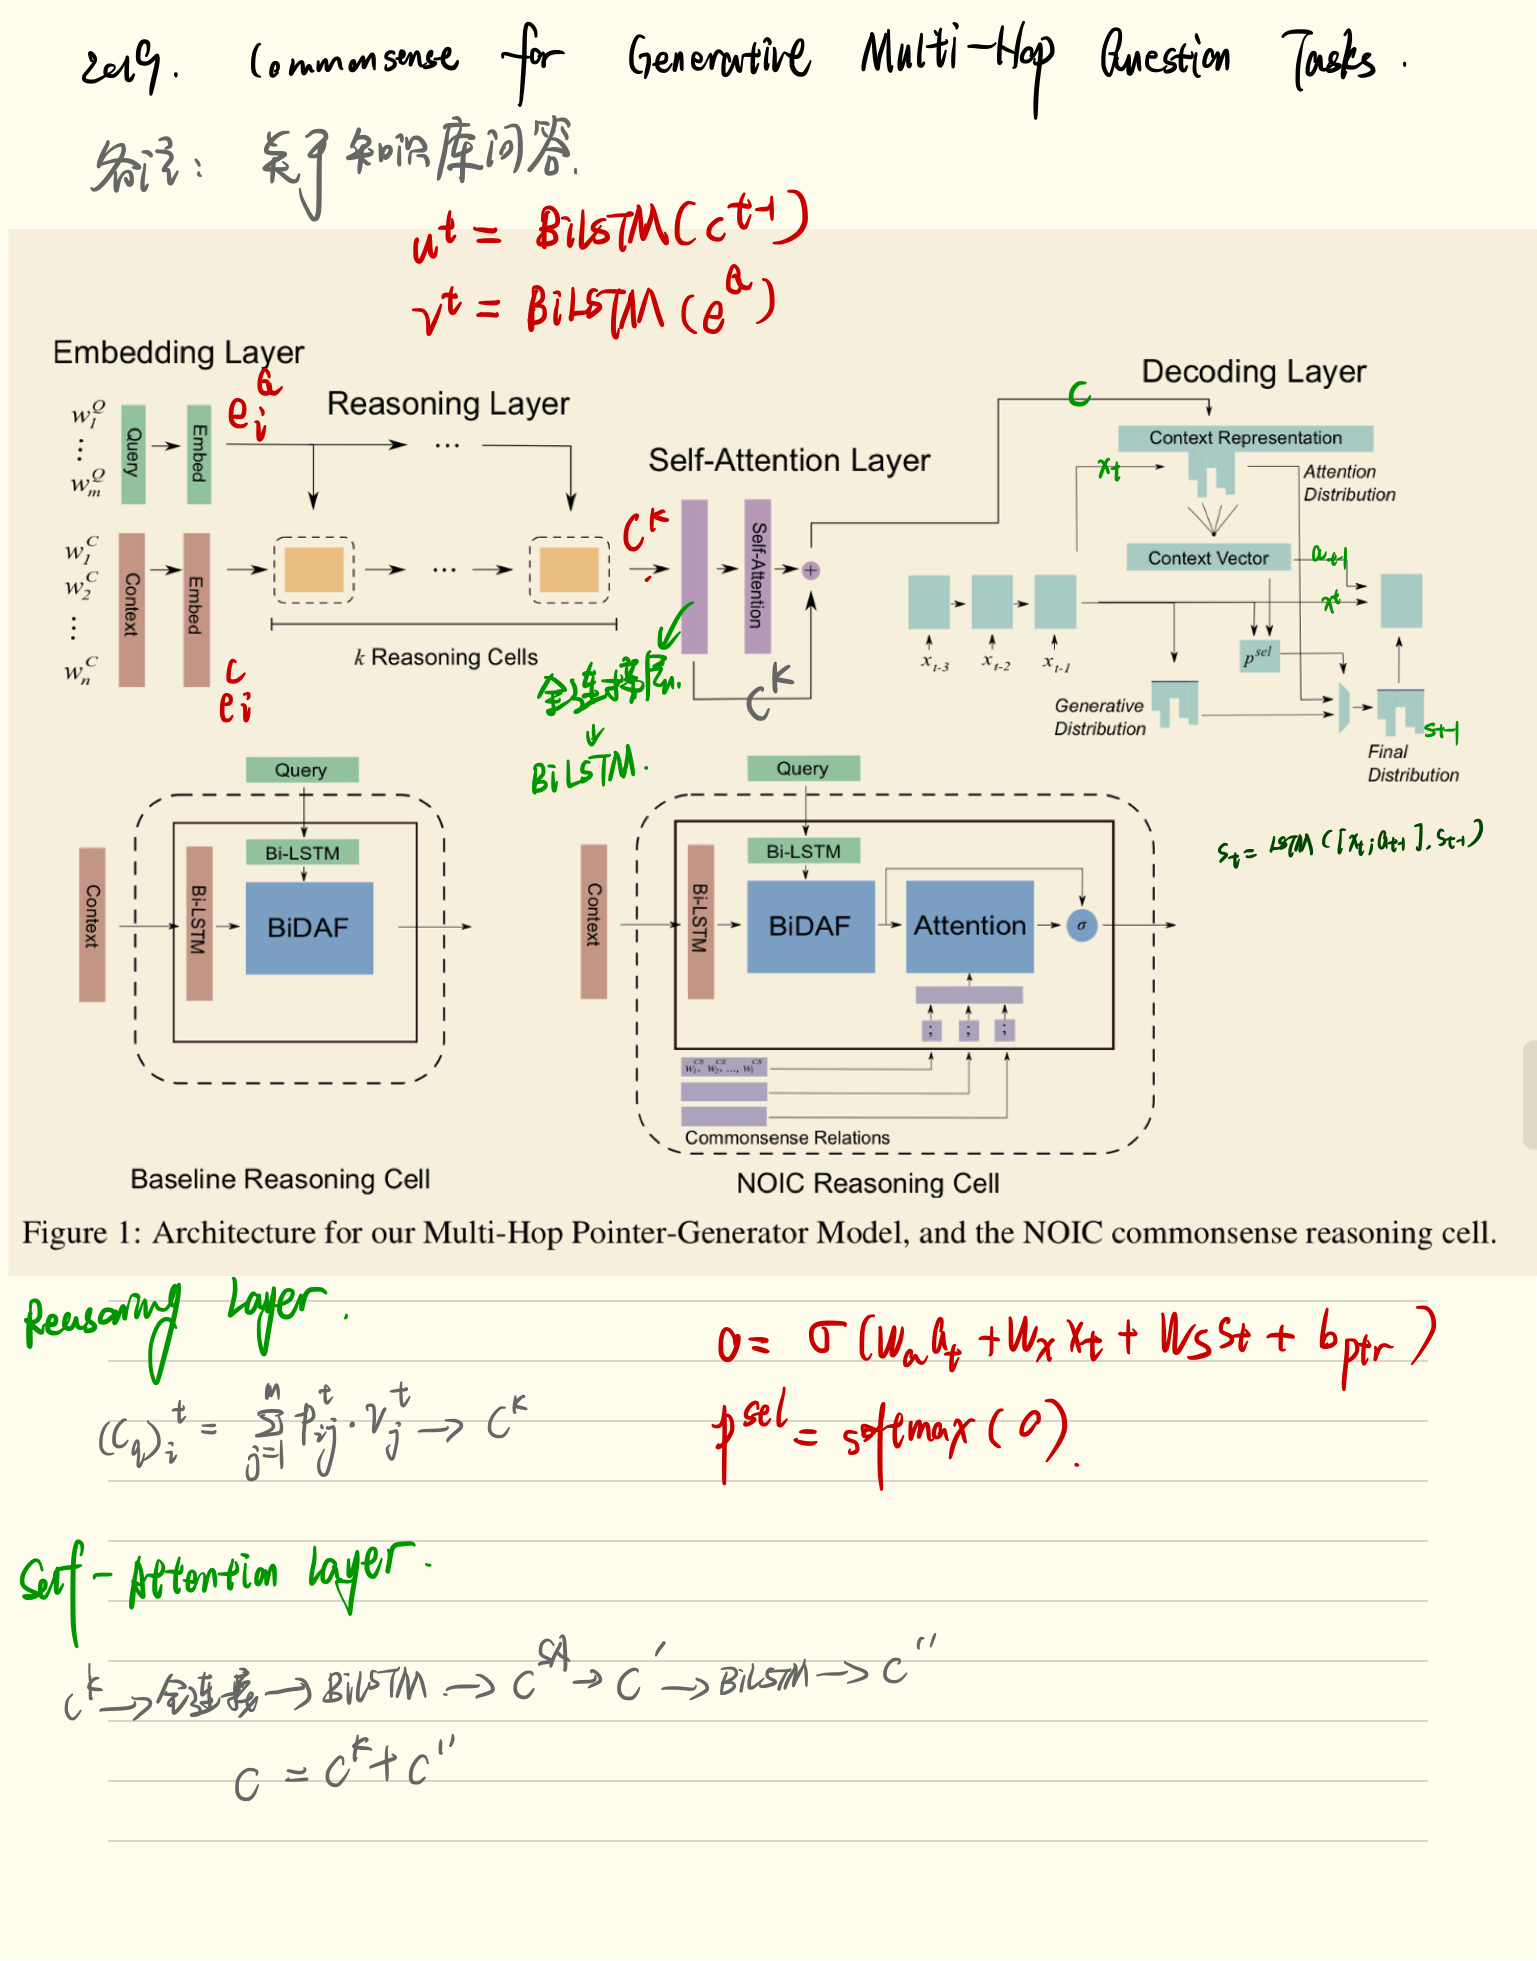 2019. Commonsense for Generative Multi-Hop Question Tasks.
备注: 关于知识库问答.
u^t = BiLSTM(c^{t-1})
v^t = BiLSTM(e^Q)
Embedding Layer
e_i^Q
w_1^Q
⋮
w_m^Q
Query
Embed
Reasoning Layer
...
w_1^C
w_2^C
⋮
w_n^C
Context
Embed
e_i^C
...
k Reasoning Cells
Self-Attention Layer
C^K
Self-Attention
+
C^K
全连接层.
↓
BiLSTM.
Decoding Layer
C
Context Representation
x_t
Attention
Distribution
Context Vector
a_{t-1}
x^t
x_{t-3} x_{t-2} x_{t-1}
p^{sel}
Generative
Distribution
s_{t-1}
Final
Distribution
s_t = LSTM([x_t; a_{t-1}], s_{t-1})
Query
Context
Bi-LSTM
Bi-LSTM
BiDAF
Baseline Reasoning Cell
Query
Context
Bi-LSTM
Bi-LSTM
BiDAF
Attention
σ
; ; ;
w_1^{CS}, w_2^{CS}, ..., w_l^{CS}
Commonsense Relations
NOIC Reasoning Cell
Figure 1: Architecture for our Multi-Hop Pointer-Generator Model, and the NOIC commonsense reasoning cell.
Reasoning Layer.
(C_q)_i^t = Σ_{j=1}^m p_{ij}^t · v_j^t → C^K
o = σ(W_a a_t + W_x x_t + W_s s_t + b_{ptr})
p^{sel} = softmax(o).
Self-Attention Layer.
C^K → 全连接 → BiLSTM → C^{SA} → C' → BiLSTM → C''
C = C^K + C''